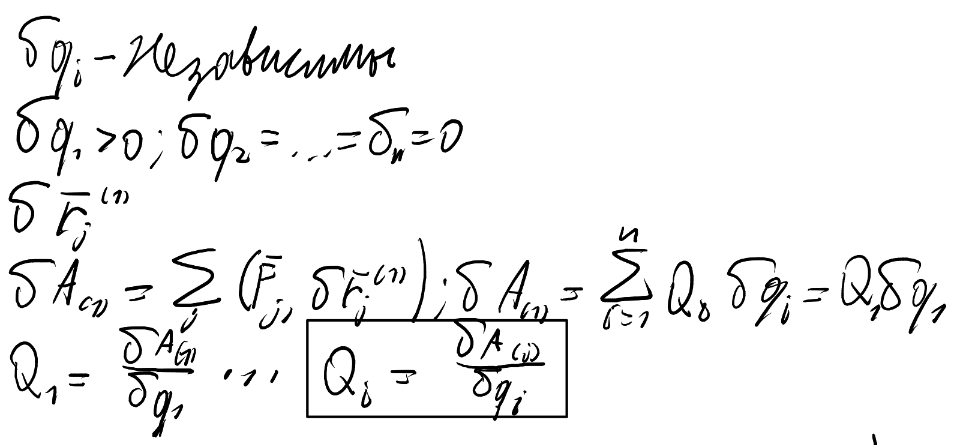 δqᵢ - Независимы
δq₁ > 0; δq₂ = ... = δₙ = 0
δr̄ⱼ⁽¹⁾
δA₍₁₎ = ∑ⱼ (F̄ⱼ, δr̄ⱼ⁽¹⁾); δA₍₁₎ = ∑ᵢ₌₁ⁿ Qᵢ δqᵢ = Q₁δq₁
Q₁ = δA₍₁₎/δq₁ ... Qᵢ = δA₍ᵢ₎/δqᵢ